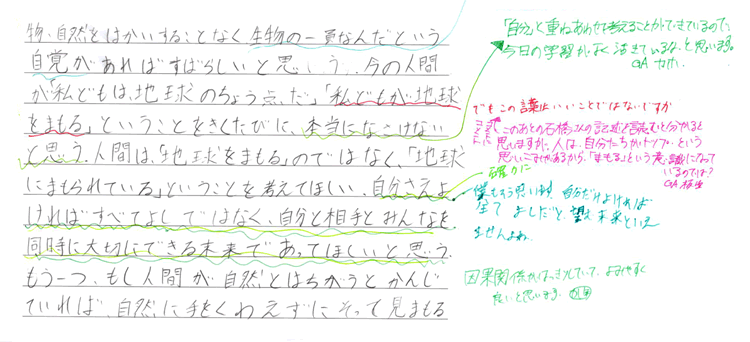 物、自然をはかいすることなく生物の一員なんだという
自覚があればすばらしいと思う。今の人間
が「私どもは、地球のちょう点だ」「私どもが地球
をまもる」ということをきくたびに、本当になさけない
と思う。人間は、「地球をまもる」のではなく、「地球
にまもられている」ということを考えてほしい。自分さえよ
ければすべてよしではなく、自分と相手とみんなを
同時に大切にできる未来であってほしいと思う。
もう一つ、もし人間が、自然とはちがうとかんじ
ていれば、自然に手をくわえずにそって見まもる
「自分」と重ねあわせて考えることができているので、
今日の学習がよく活きているなと思います。
でもこの
いいことではないですか
このあとの石橋さんの記述を読むと分かると
思いますが、人は、自分たちがトップという
思いこみがあるから、「まもる」という意識になって
いるのでは?
確かに
僕もそう思います。自分だけよければ
全てよしだと、望む未来といえ
ませんよね。
因果関係がはっきりしていて、よみやすく
良いと思います。